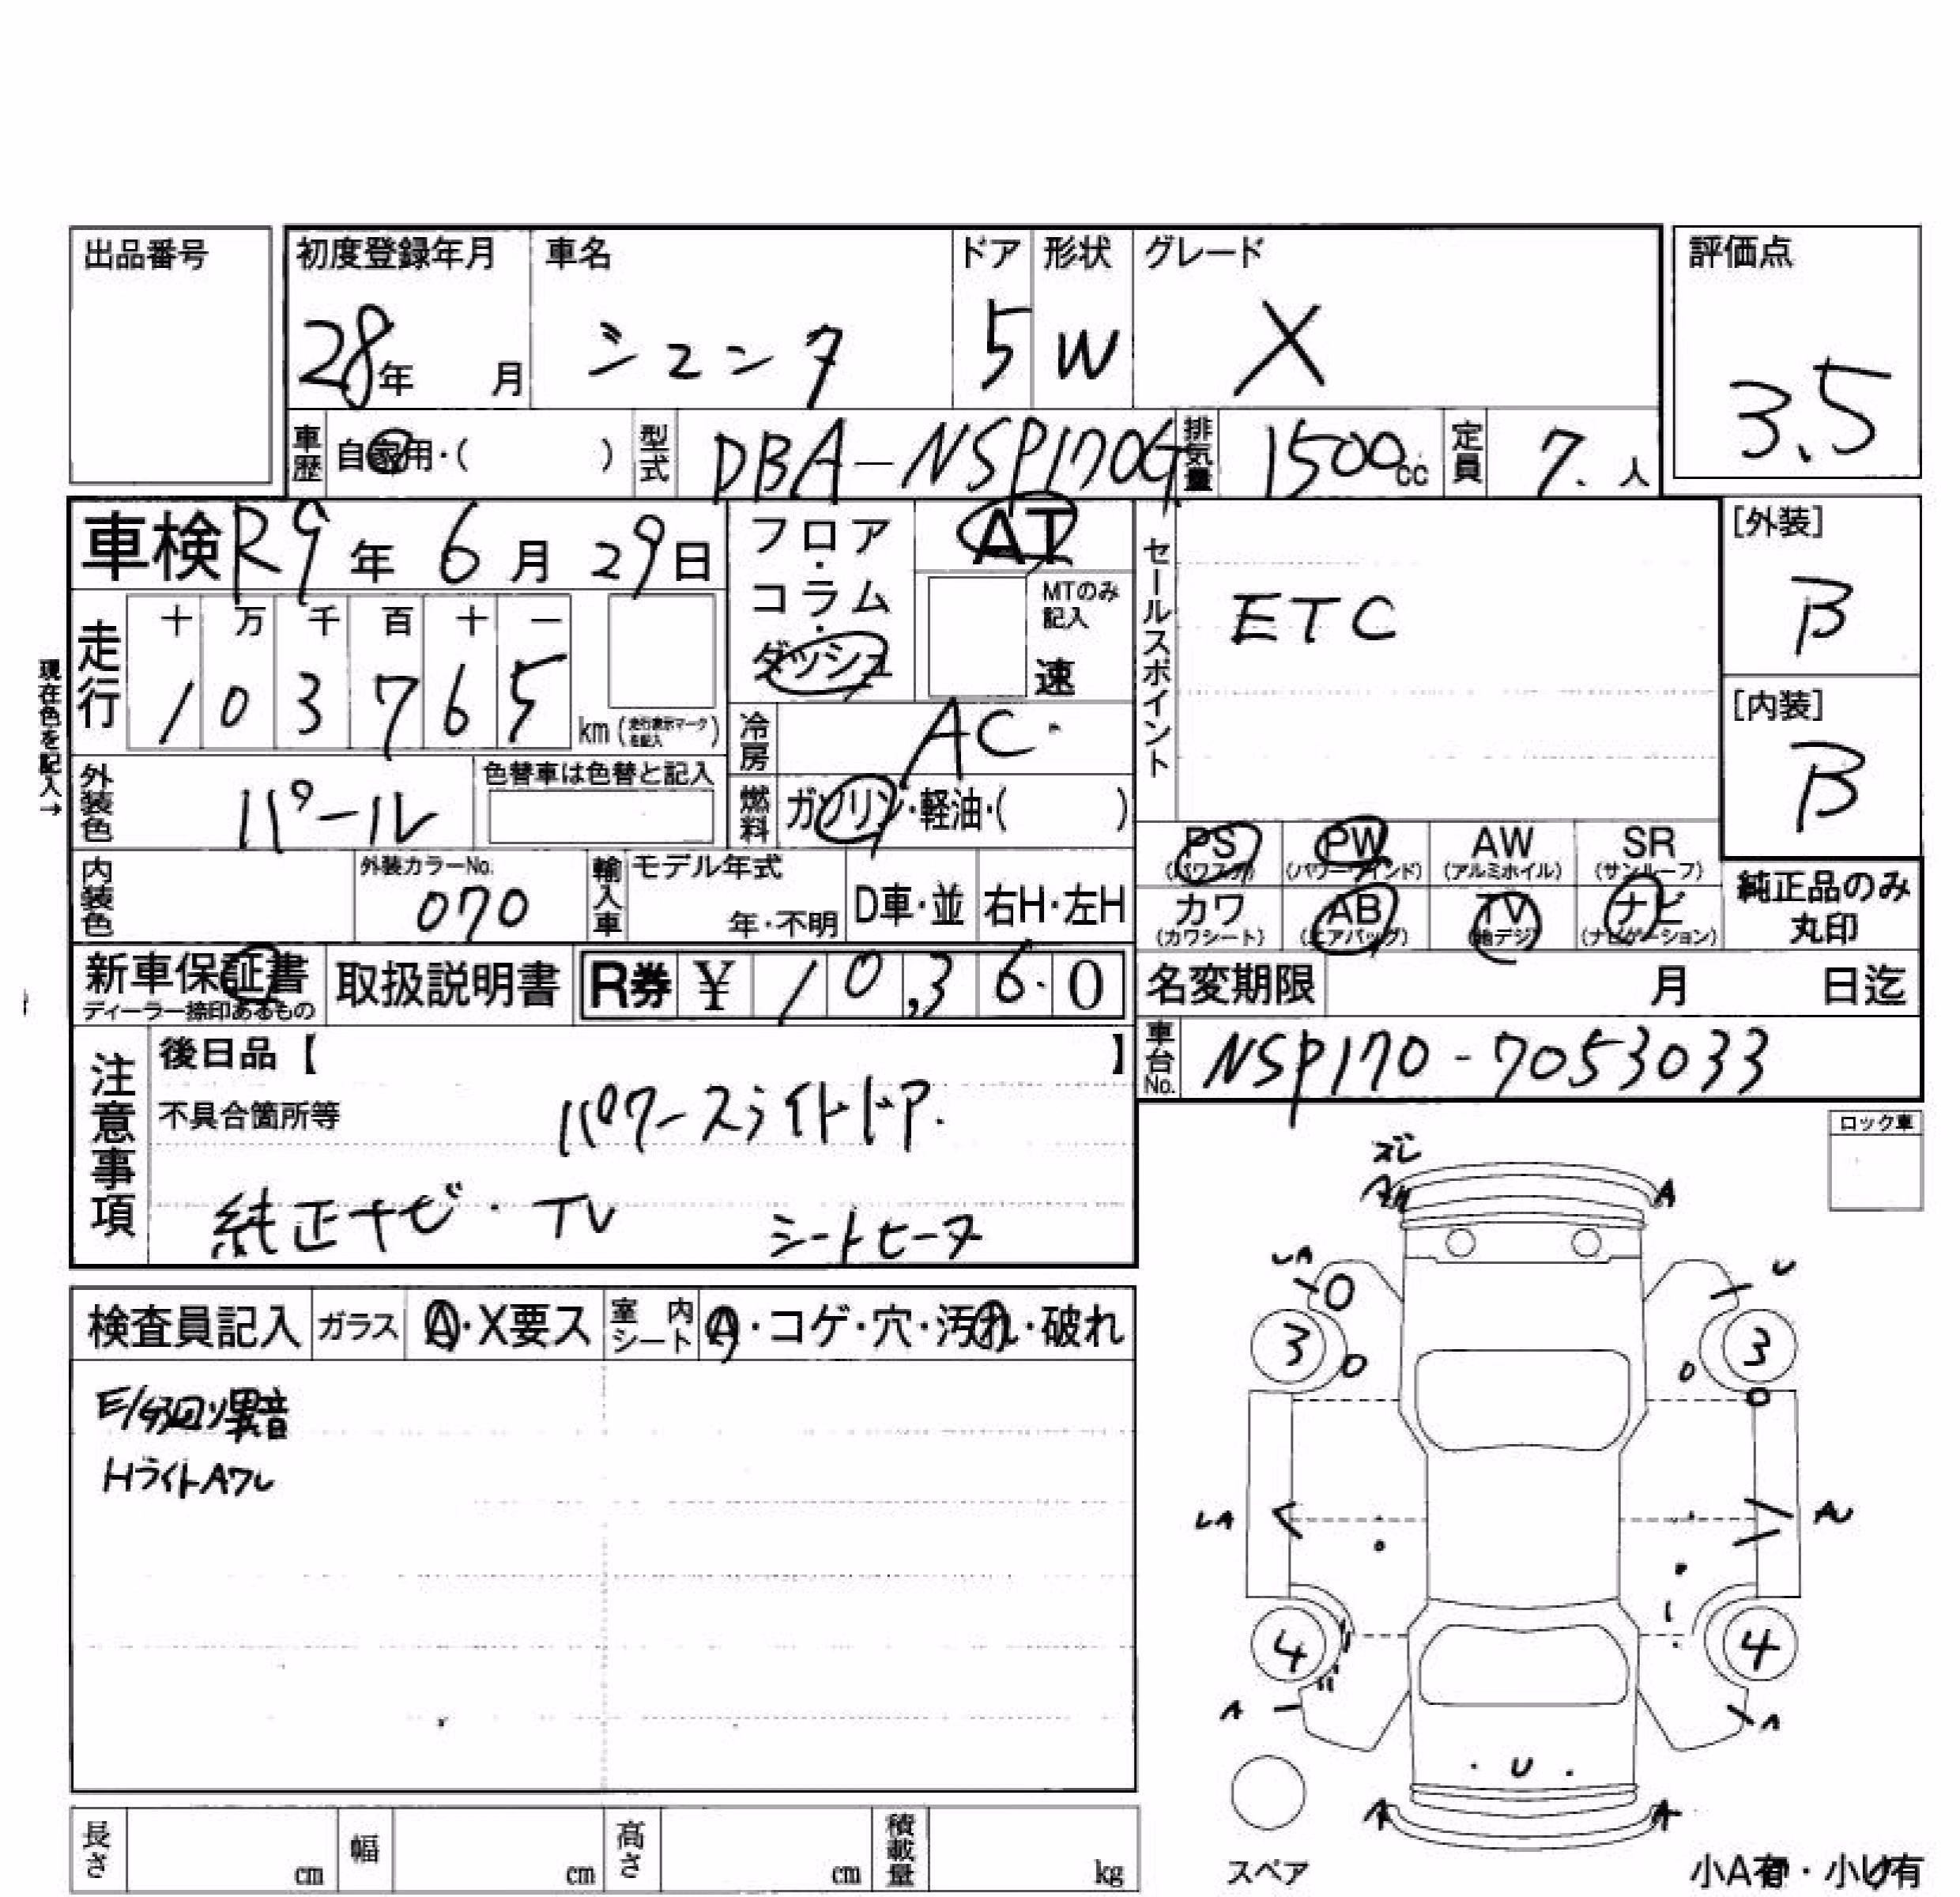 出品番号
初度登録年月 車名 ドア 形状 グレード 評価点
28年 月 シエンタ 5 W X 3.5
車歴 自家用・( ) 型式 DBA-NSP170G 排気量 1500cc 定員 7.人
車検 R9年 6月 29日
フロア・コラム・ダッシュ
AT
MTのみ記入
速
セールスポイント
ETC
[外装]
B
[内装]
B
現在色を記入→
走行 十 万 千 百 十 一
1 0 3 7 6 5 km (走行表示マークを記入)
冷房 AC
外装色 パール 色替車は色替と記入
燃料 ガソリン・軽油・( )
PS (パワステ) PW (パワーウインド) AW (アルミホイル) SR (サンルーフ)
カワ (カワシート) AB (エアバッグ) TV (地デジ) ナビ (ナビゲーション)
純正品のみ丸印
内装色 外装カラーNo. 070 輸入車 モデル年式 年・不明 D車・並 右H・左H
新車保証書 ディーラー捺印あるもの 取扱説明書 R券 ¥ 10,36.0
名変期限 月 日迄
車台No. NSP170-7053033
注意事項
後日品【 】
不具合箇所等 パワースライドドア.
純正ナビ・TV シートヒータ
ロック車
検査員記入 ガラス A・X要ス 室内シート A・コゲ・穴・汚れ・破れ
異音
HライトAワレ
ズレ
A
LA U
3 3
LA AU
4 4
A A
U
A A
スペア
小A有・小U有
長さ cm 幅 cm 高さ cm 積載量 kg